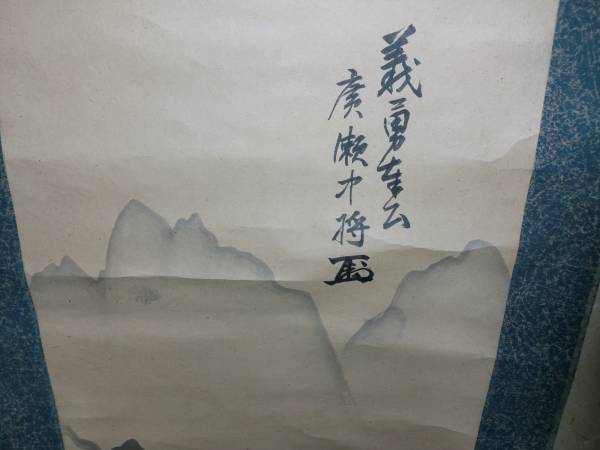 義勇奉公
廣瀬中将